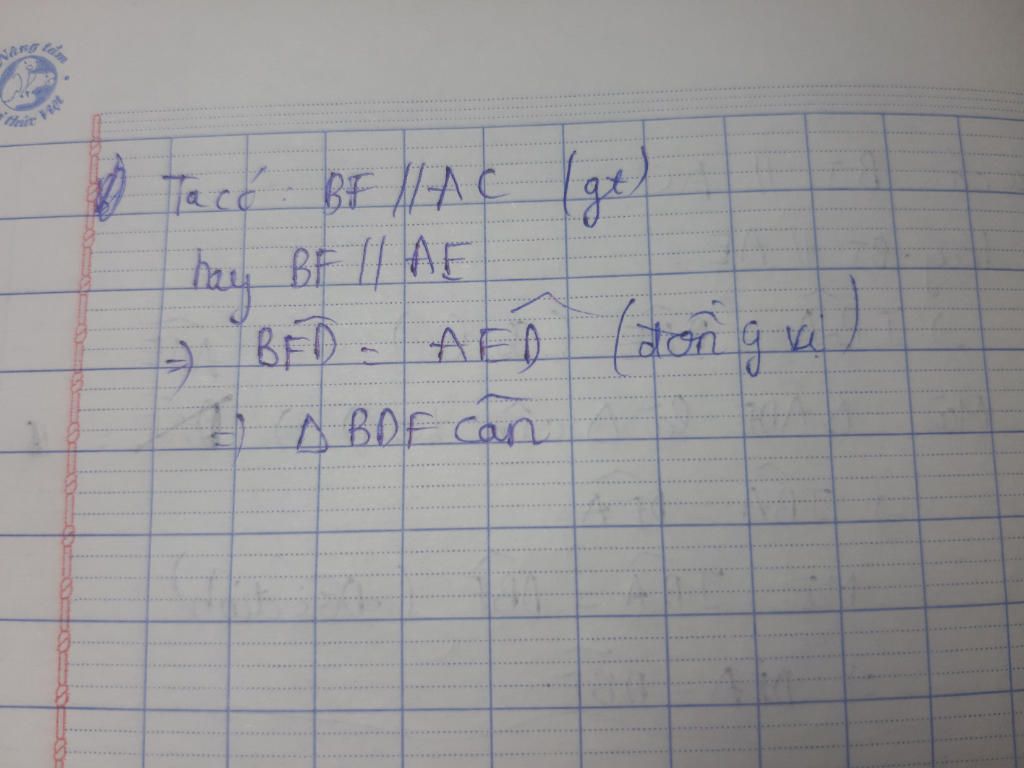 Nâng tầm
tri thức Việt
b) Ta có: BF // AC (gt)
hay BF // AE
=> BFD = AED (đồng vị)
=> Δ BDF cân